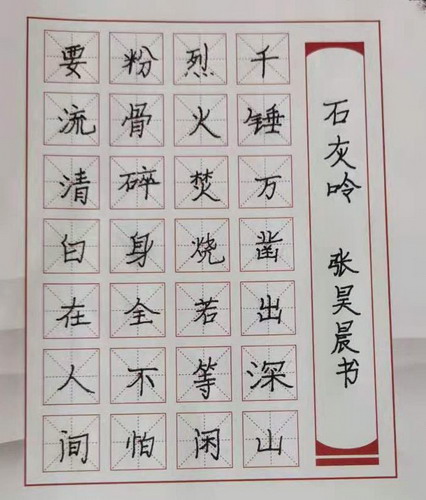 石灰呤 张昊晨书
千锤万凿出深山
烈火焚烧若等闲
粉骨碎身全不怕
要流清白在人间